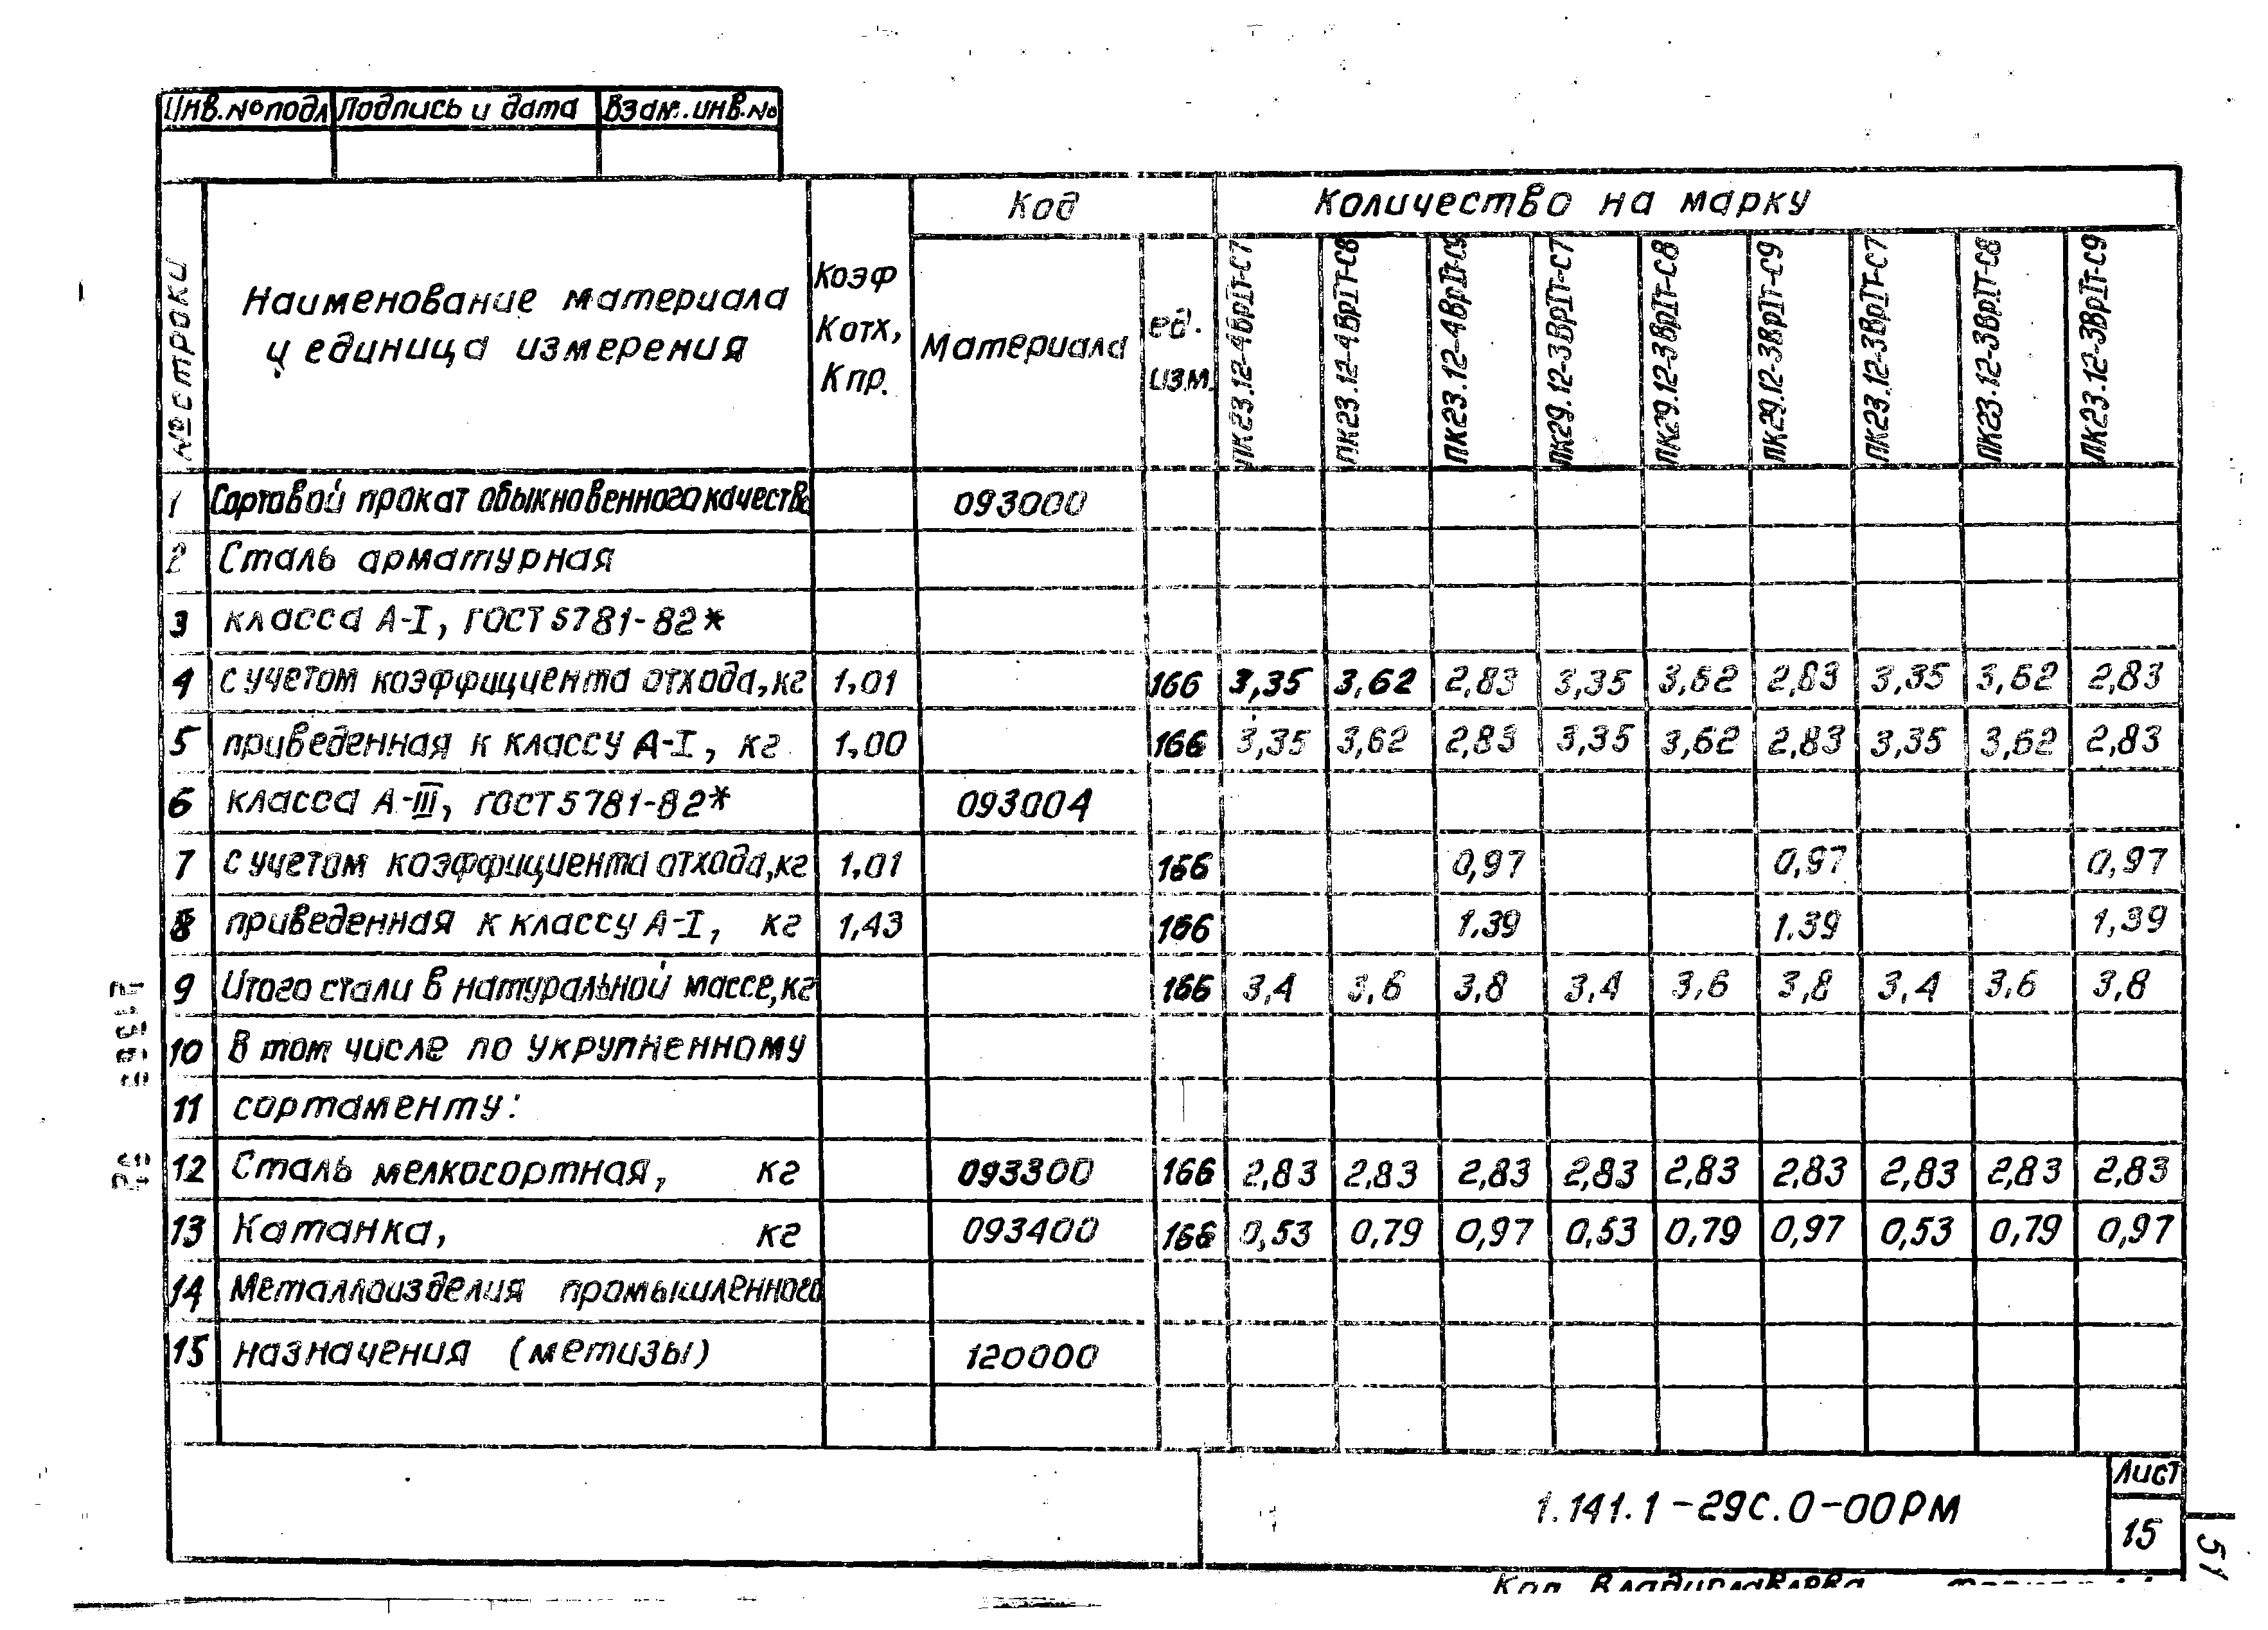 Инв.№подл Подпись и дата Взам.инв.№
№ строки
Наименование материала
и единица измерения
Коэф
Котх,
Кпр.
Код
Материала
ед.
изм.
Количество на марку
ПК23.12-4ВрIIт-С7
ПК23.12-4ВрIIт-С8
ПК23.12-4ВрIIт-С9
ПК29.12-3ВрIIт-С7
ПК29.12-3ВрIIт-С8
ПК29.12-3ВрIIт-С9
ПК23.12-3ВрIIт-С7
ПК23.12-3ВрIIт-С8
ПК23.12-3ВрIIт-С9
1 Сортовой прокат обыкновенного качества 093000
2 Сталь арматурная
3 класса А-I, ГОСТ 5781-82*
4 с учетом коэффициента отхода, кг 1,01 166 3,35 3,62 2,83 3,35 3,62 2,83 3,35 3,62 2,83
5 приведенная к классу А-I, кг 1,00 166 3,35 3,62 2,83 3,35 3,62 2,83 3,35 3,62 2,83
6 класса А-III, ГОСТ 5781-82* 093004
7 с учетом коэффициента отхода, кг 1,01 166 0,97 0,97 0,97
8 приведенная к классу А-I, кг 1,43 166 1.39 1.39 1,39
9 Итого стали в натуральной массе, кг 166 3,4 3,6 3,8 3,4 3,6 3,8 3,4 3,6 3,8
10 В том числе по укрупненному
11 сортаменту:
12 Сталь мелкосортная, кг 093300 166 2,83 2,83 2,83 2,83 2,83 2,83 2,83 2,83 2,83
13 Катанка, кг 093400 166 0,53 0,79 0,97 0,53 0,79 0,97 0,53 0,79 0,97
14 Металлоизделия промышленного
15 назначения (метизы) 120000
1.141.1-29С.0-00РМ
Лист
15
51